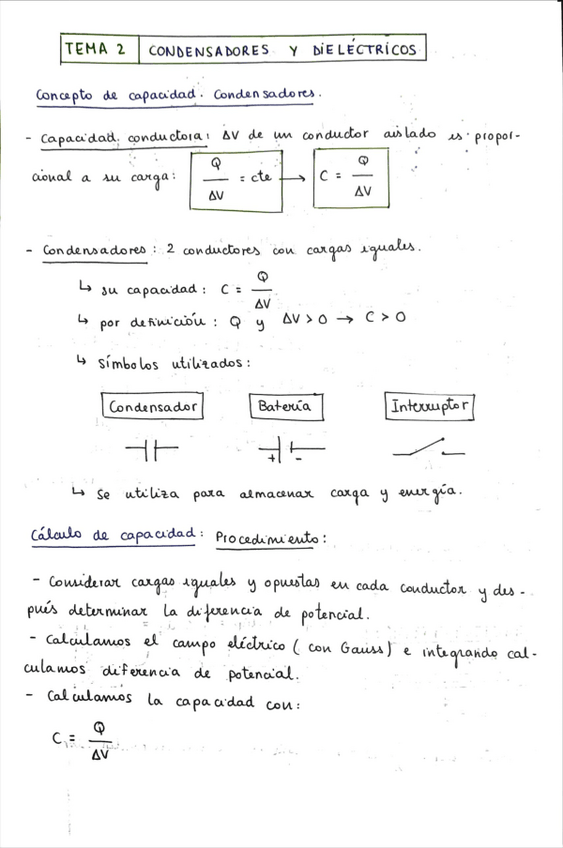 TEMA 2 CONDENSADORES Y DIELÉCTRICOS
Concepto de capacidad. Condensadores.
- Capacidad conductora: ΔV de un conductor aislado es propor-
cional a su carga: Q/ΔV = cte → C = Q/ΔV
- Condensadores: 2 conductores con cargas iguales.
↳ su capacidad: C = Q/ΔV
↳ por definición: Q y ΔV > 0 → C > 0
↳ Símbolos utilizados:
Condensador Batería Interruptor
+ -
↳ Se utiliza para almacenar carga y energía.
Cálculo de capacidad: Procedimiento:
- Considerar cargas iguales y opuestas en cada conductor y des-
pués determinar la diferencia de potencial.
- Calculamos el campo eléctrico (con Gauss) e integrando cal-
culamos diferencia de potencial.
- Calculamos la capacidad con:
C = Q/ΔV